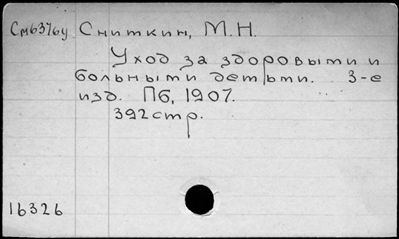 См6376у Сниткин, М.Н.
Уход за здоровыми и
больными детьми. 3-е
изд. Пб, 1907.
392стр.
16326